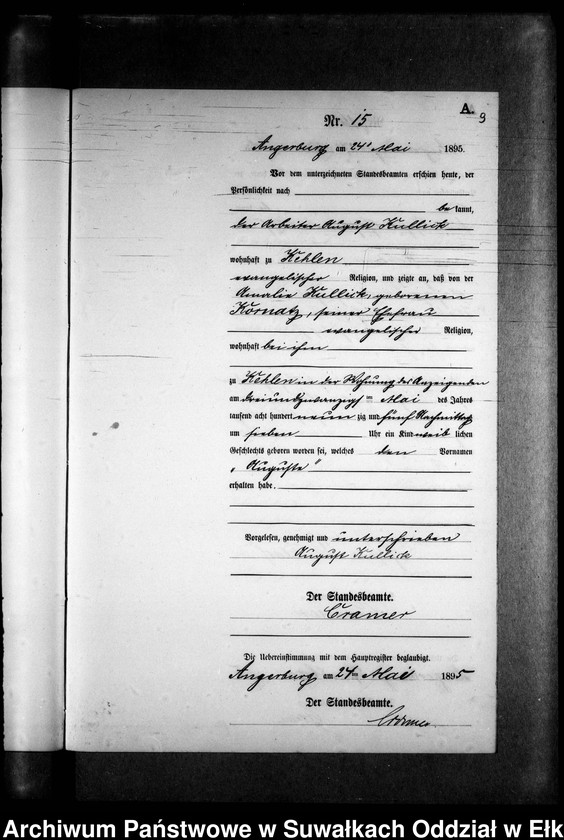 A.
9
Nr. 15
Angerburg am 24ᵗ Mai 1895.
Vor dem unterzeichneten Standesbeamten erschien heute, der
Persönlichkeit nach
be kannt,
der Arbeiter August Kullick
wohnhaft zu Kehlen
evangelischer Religion, und zeigte an, daß von der
Amalie Kullick, geborenen
Kornatz, seiner Ehefrau
evangelischer Religion,
wohnhaft bei ihm
zu Kehlen in der Wohnung des Anzeigenden
am dreiundzwanzigsten Mai des Jahres
tausend acht hundert neun zig und fünf Nachmittags
um sieben Uhr ein Kind weib lichen
Geschlechts geboren worden sei, welches den Vornamen
„Auguste"
erhalten habe.
Vorgelesen, genehmigt und unterschrieben
August Kullick
Der Standesbeamte.
Cramer
Die Uebereinstimmung mit dem Hauptregister beglaubigt.
Angerburg am 24ten Mai 1895
Der Standesbeamte.
Cramer
Archiwum Państwowe w Suwałkach Oddział w Ełk